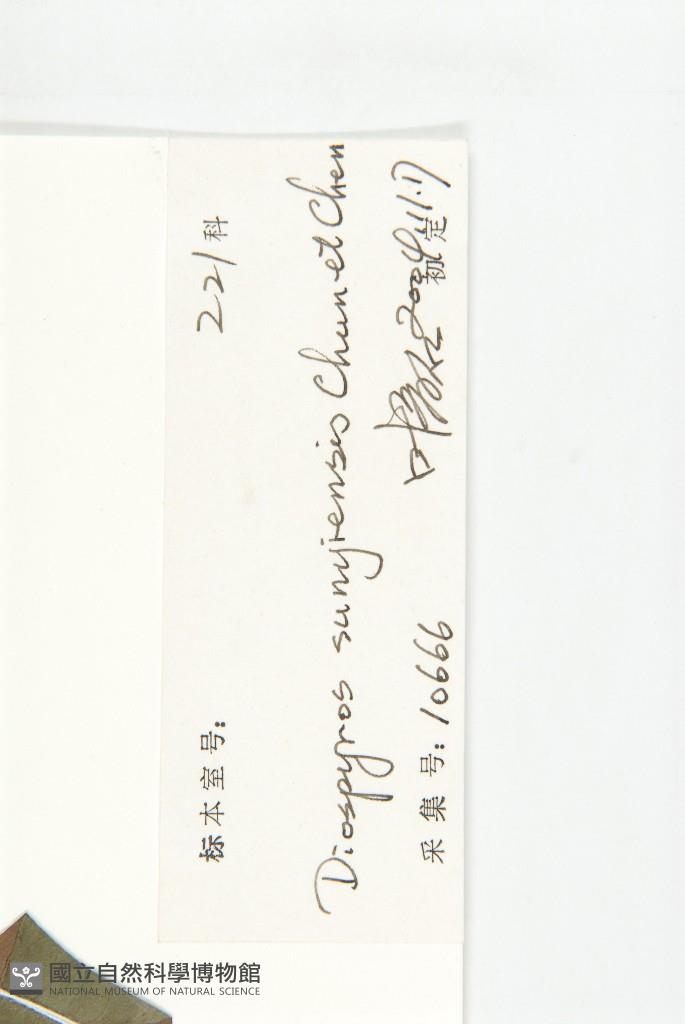 标本室号: 221科
Diospyros sunyiensis Chun et Chen
采集号: 10666 叶 2004.11.17 初定
國立自然科學博物館
NATIONAL MUSEUM OF NATURAL SCIENCE